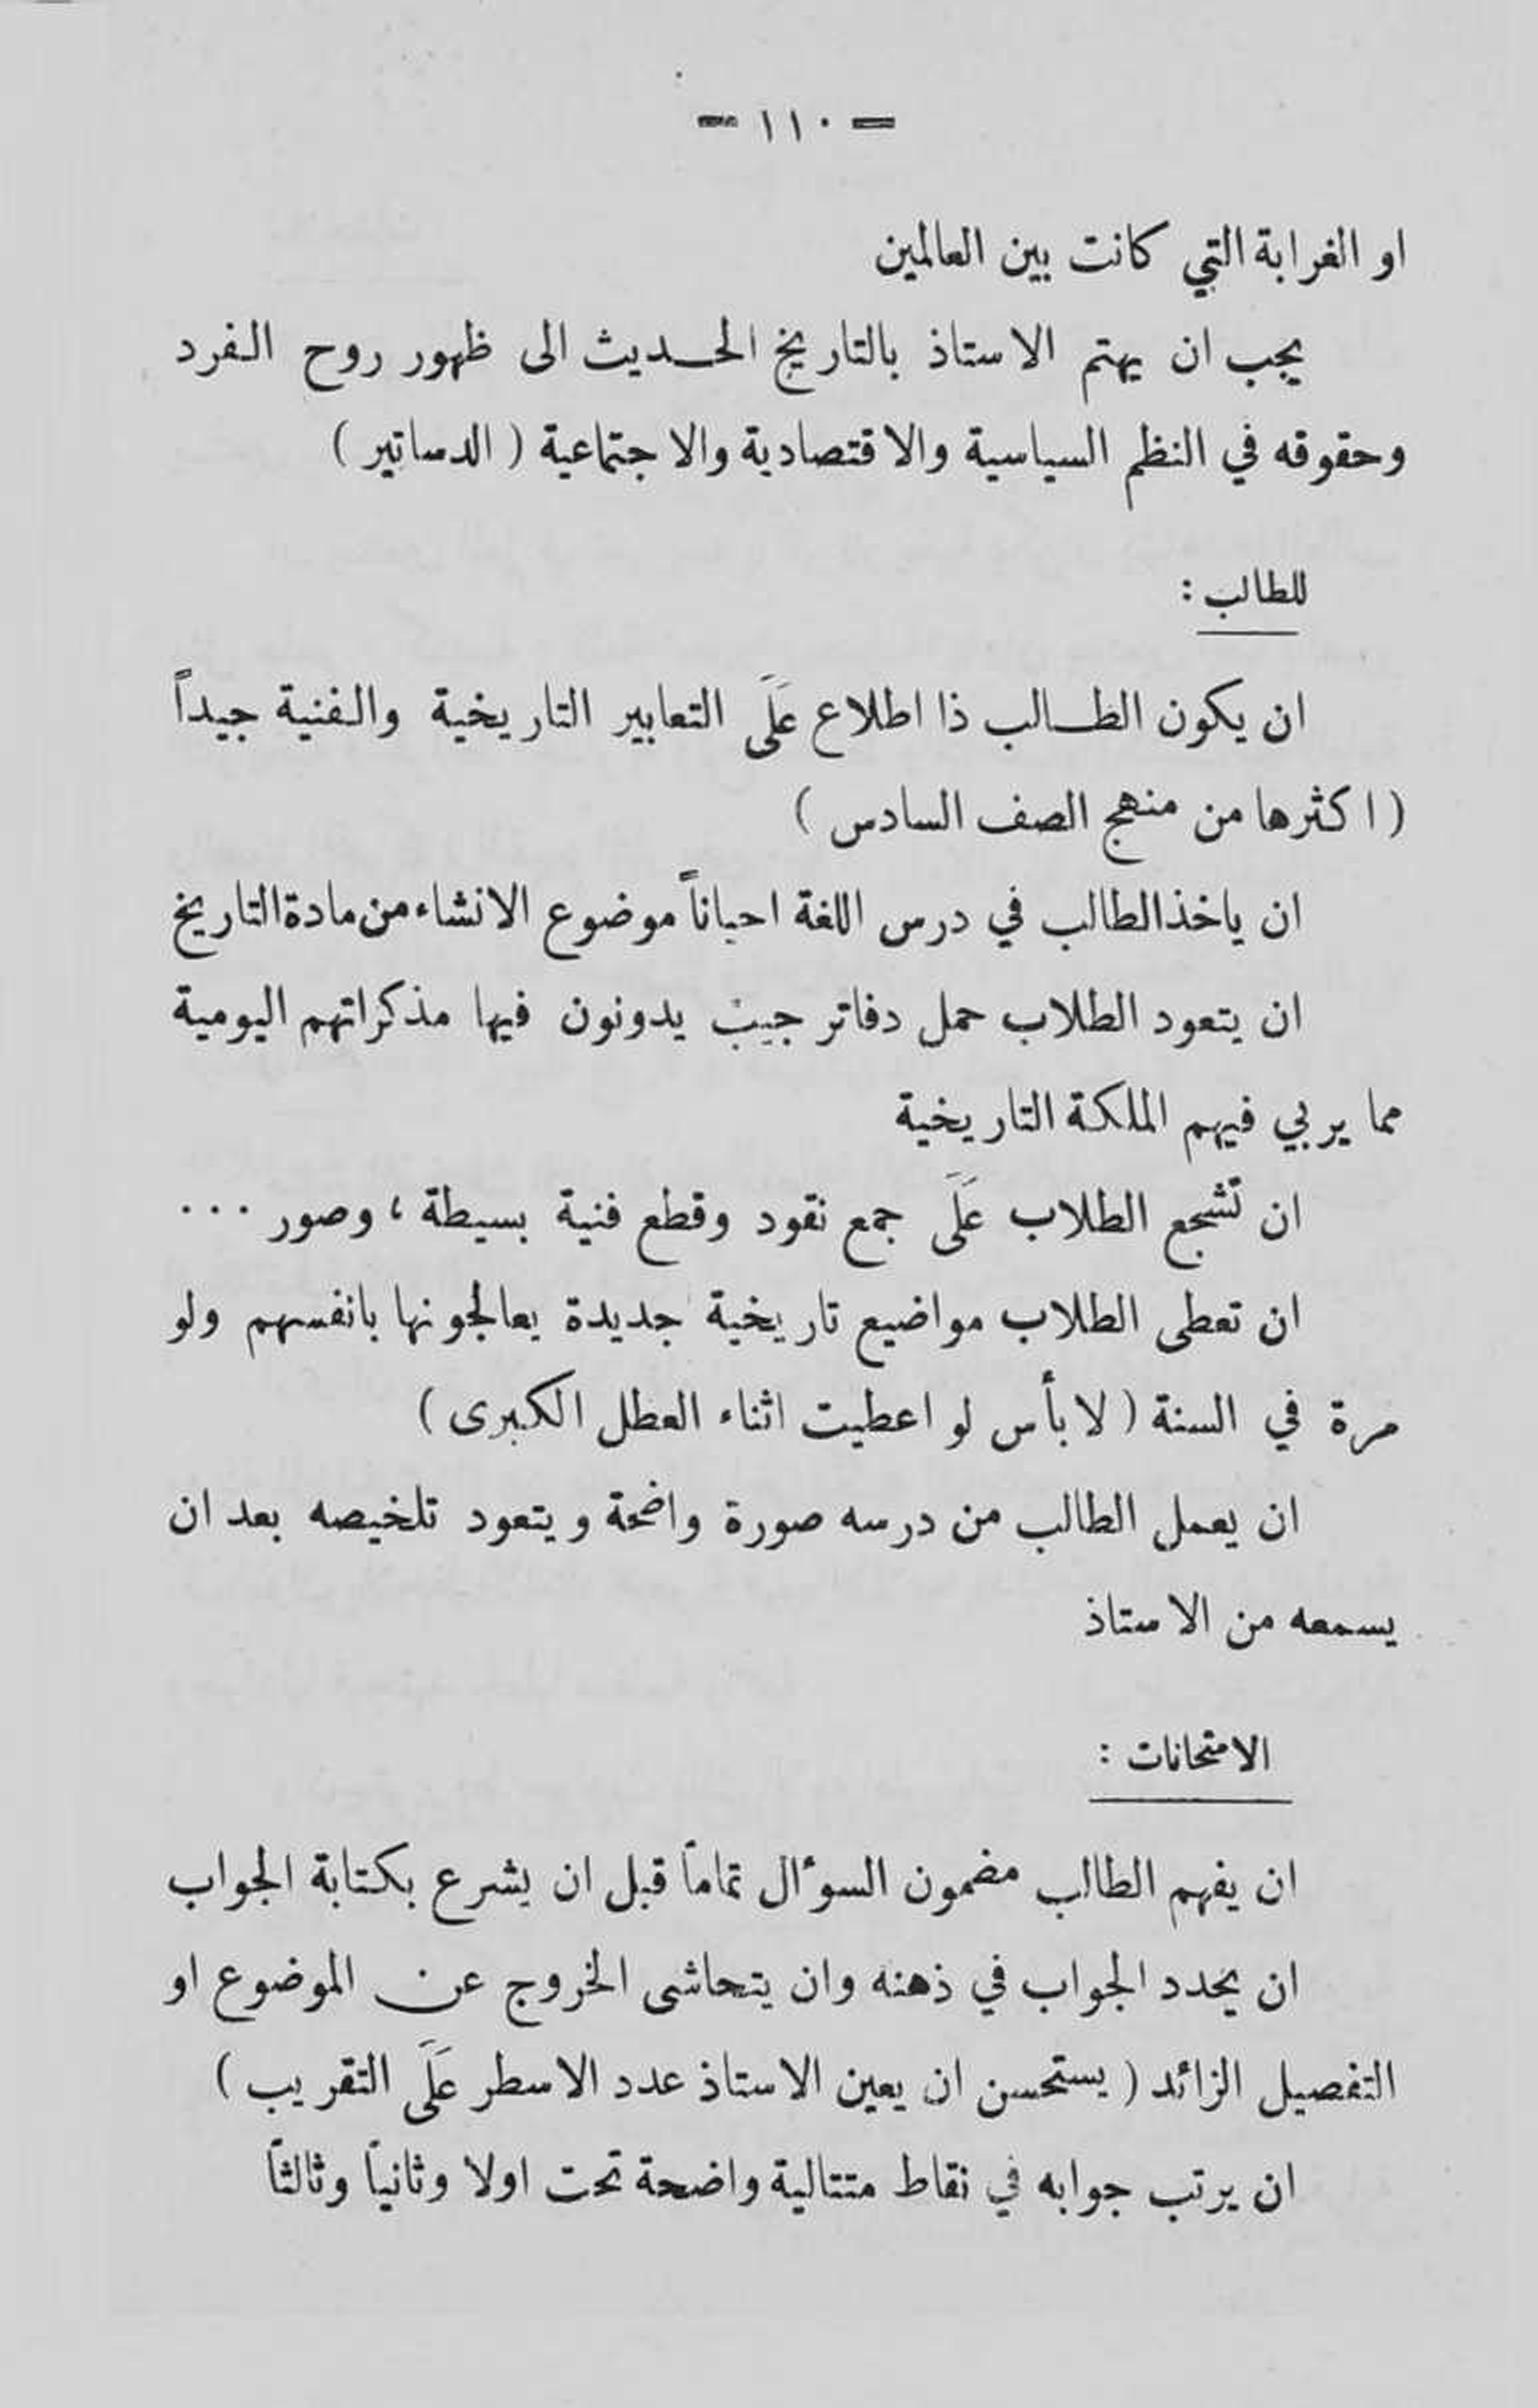 — ١١٠ —
او الغرابة التي كانت بين العالمين
يجب ان يهتم الاستاذ بالتاريخ الحديث الى ظهور روح الفرد
وحقوقه في النظم السياسية والاقتصادية والاجتماعية ( الدساتير )
للطالب :
ان يكون الطالب ذا اطلاع عَلَى التعابير التاريخية والفنية جيداً
( اكثرها من منهج الصف السادس )
ان ياخذ الطالب في درس اللغة احياناً موضوع الانشاء من مادة التاريخ
ان يتعود الطلاب حمل دفاتر جيب يدونون فيها مذكراتهم اليومية
مما يربي فيهم الملكة التاريخية
ان تُشجع الطلاب عَلَى جمع نقود وقطع فنية بسيطة ، وصور ...
ان تعطى الطلاب مواضيع تاريخية جديدة يعالجونها بانفسهم ولو
مرة في السنة ( لا بأس لو اعطيت اثناء العطل الكبرى )
ان يعمل الطالب من درسه صورة واضحة ويتعود تلخيصه بعد ان
يسمعه من الاستاذ
الامتحانات :
ان يفهم الطالب مضمون السوءال تماماً قبل ان يشرع بكتابة الجواب
ان يحدد الجواب في ذهنه وان يتحاشى الخروج عن الموضوع او
التفصيل الزائد ( يستحسن ان يعين الاستاذ عدد الاسطر عَلَى التقريب )
ان يرتب جوابه في نقاط متتالية واضحة تحت اولا وثانياً وثالثاً